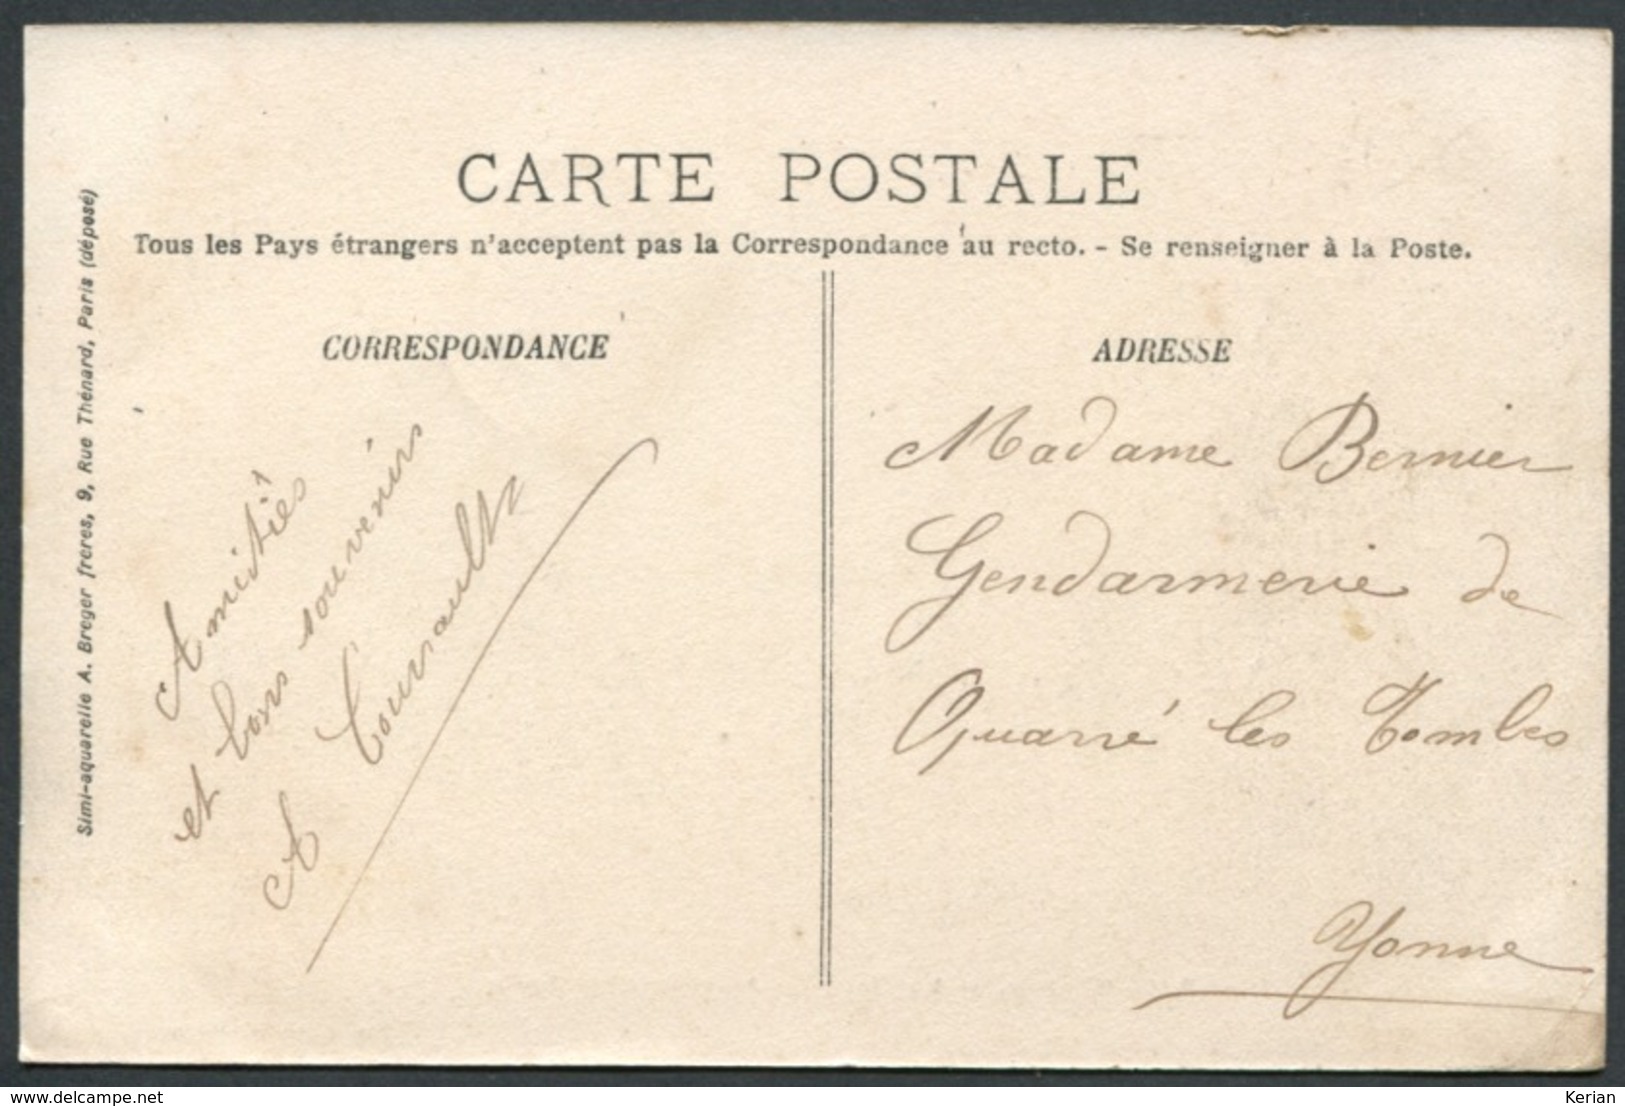 CARTE POSTALE
Tous les Pays étrangers n'acceptent pas la Correspondance au recto. - Se renseigner à la Poste.
Simi-aquarelle A. Breger frères, 9, Rue Thénard, Paris (déposé)
CORRESPONDANCE
Amitiés
et bons souvenirs
A Courault
ADRESSE
Madame Bernier
Gendarmerie de
Quarré les Tombes
Yonne
www.delcampe.net
Kerian